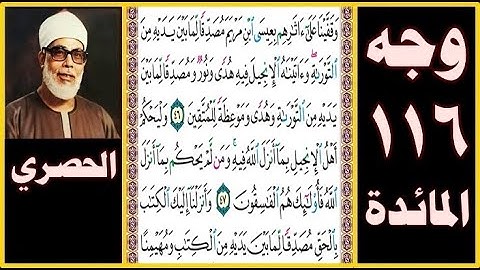 وجه
١١٦
المائدة
وَقَفَّيْنَا عَلَىٰٓ ءَاثَٰرِهِم بِعِيسَى ٱبْنِ مَرْيَمَ مُصَدِّقًا لِّمَا بَيْنَ يَدَيْهِ مِنَ
ٱلتَّوْرَىٰةِ ۖ وَءَاتَيْنَٰهُ ٱلْإِنجِيلَ فِيهِ هُدًى وَنُورٌ وَمُصَدِّقًا لِّمَا بَيْنَ
يَدَيْهِ مِنَ ٱلتَّوْرَىٰةِ وَهُدًى وَمَوْعِظَةً لِّلْمُتَّقِينَ ٤٦ وَلْيَحْكُمْ
أَهْلُ ٱلْإِنجِيلِ بِمَآ أَنزَلَ ٱللَّهُ فِيهِ ۚ وَمَن لَّمْ يَحْكُم بِمَآ أَنزَلَ
ٱللَّهُ فَأُو۟لَٰٓئِكَ هُمُ ٱلْفَٰسِقُونَ ٤٧ وَأَنزَلْنَآ إِلَيْكَ ٱلْكِتَٰبَ
بِٱلْحَقِّ مُصَدِّقًا لِّمَا بَيْنَ يَدَيْهِ مِنَ ٱلْكِتَٰبِ وَمُهَيْمِنًا
الحصري